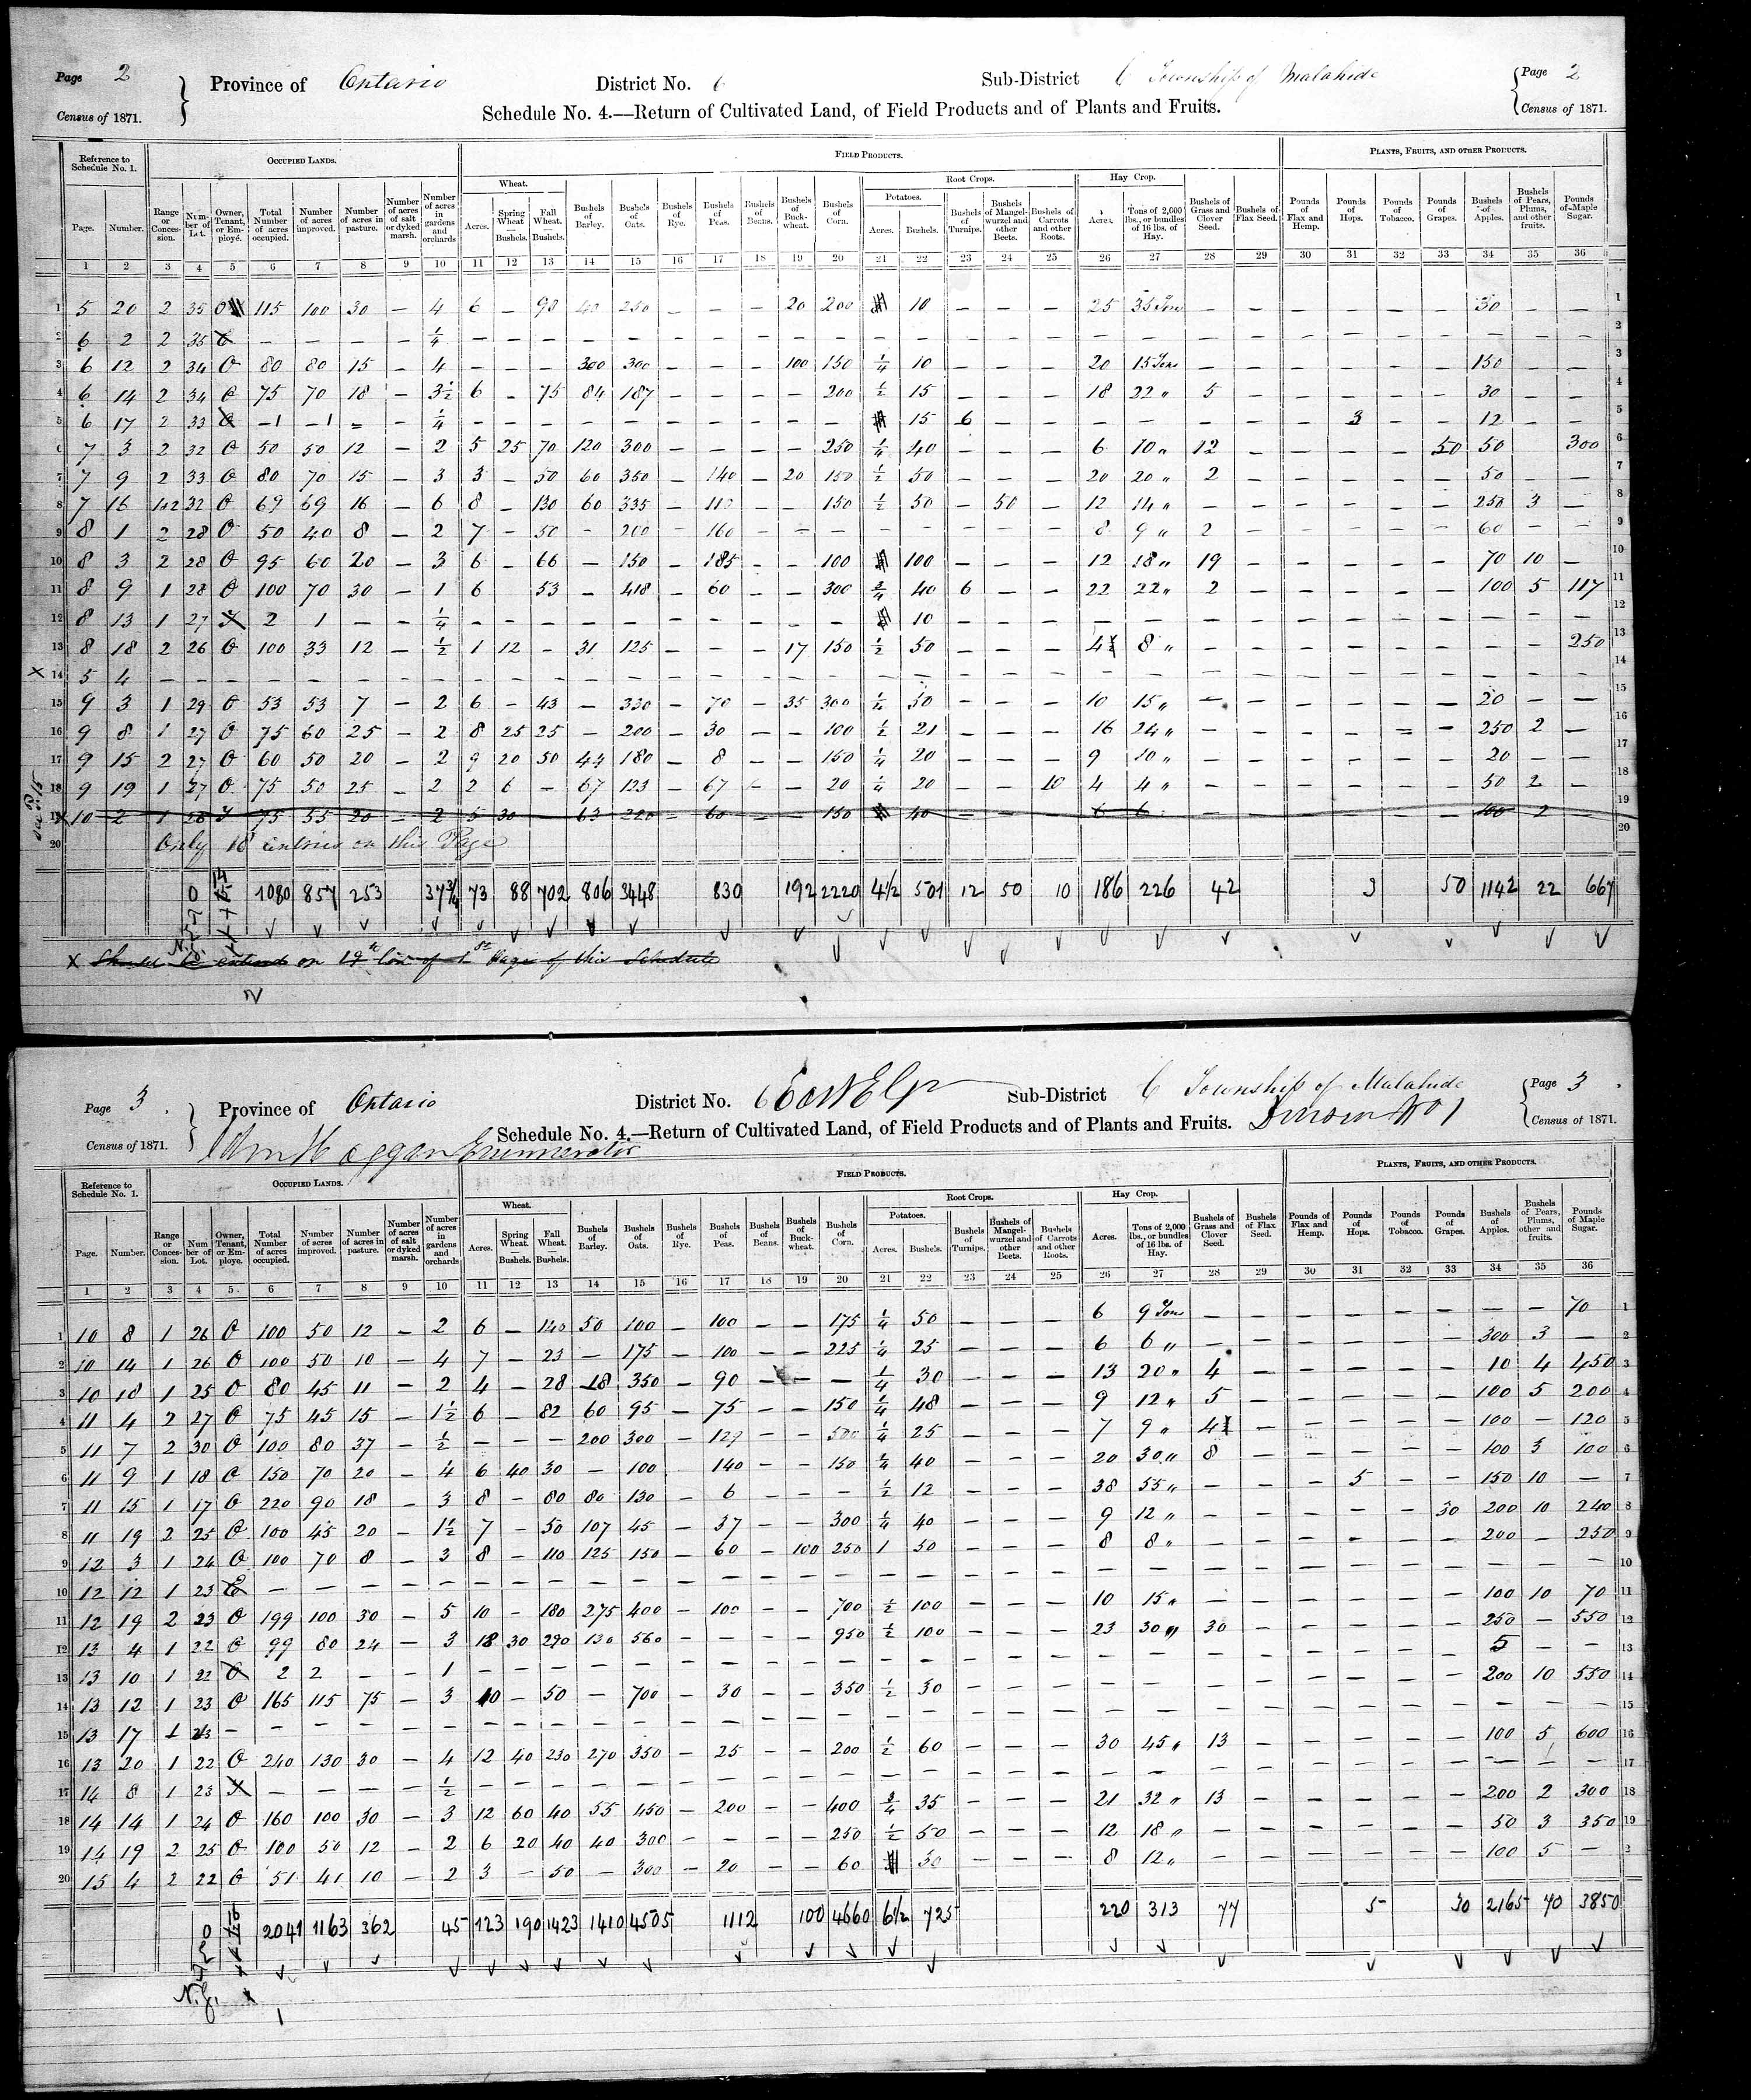 Page 2 Province of Ontario District No. 6 Sub-District C Township of Malahide Page 2
Census of 1871. Schedule No. 4.—Return of Cultivated Land, of Field Products and of Plants and Fruits. Census of 1871.
Reference to Schedule No. 1. OCCUPIED LANDS. FIELD PRODUCTS. PLANTS, FRUITS, AND OTHER PRODUCTS.
Wheat. Root Crops. Potatoes. Hay Crop.
Page. Number. Range or Concession. Number of Lot. Owner, Tenant, or Employé. Total Number of acres occupied. Number of acres improved. Number of acres in pasture. Number of acres of salt or dyked marsh. Number of acres in gardens and orchards Acres. Spring Wheat — Bushels. Fall Wheat. — Bushels. Bushels of Barley. Bushels of Oats. Bushels of Rye. Bushels of Peas. Bushels of Beans. Bushels of Buckwheat. Bushels of Corn. Acres. Bushels. Bushels of Turnips. Bushels of Mangel-wurzel and other Beets. Bushels of Carrots and other Roots. Acres. Tons of 2,000 lbs., or bundles of 16 lbs. of Hay. Bushels of Grass and Clover Seed. Bushels of Flax Seed. Pounds of Flax and Hemp. Pounds of Hops. Pounds of Tobacco. Pounds of Grapes. Bushels of Apples. Bushels of Pears, Plums, and other fruits. Pounds of Maple Sugar.
1 2 3 4 5 6 7 8 9 10 11 12 13 14 15 16 17 18 19 20 21 22 23 24 25 26 27 28 29 30 31 32 33 34 35 36
1 5 20 2 35 O 115 100 30 — 4 6 — 90 40 250 — — — 20 200 10 — — — 25 35 Tons — — — — — — 30 1
2 6 2 2 35 — — — — 1/4 — — — — — — — — — — — — — — — — — — — — — — — — — 2
3 6 12 2 34 O 80 80 15 — 4 — — — 300 300 — — — 100 150 1/4 10 — — — 20 15 Tons — — — — — — 150 — — 3
4 6 14 2 34 O 75 70 18 — 3 1/2 6 — 75 84 187 — — — — 200 1/2 15 — — — 18 22 " 5 — — — — — 30 — — 4
5 6 17 2 33 O — 1 — 1 — — 1/4 — — — — — — — — — — 15 6 — — — — — — — 3 — — 12 — — 5
6 7 3 2 32 O 50 50 12 — 2 5 25 70 120 300 — — — — 250 1/4 40 — — — 6 10 " 12 — — — — 50 50 300 6
7 7 9 2 33 O 80 70 15 — 3 3 — 50 60 350 — 140 — 20 150 1/2 50 — — — 20 20 " 2 — — — — — 50 — — 7
8 7 16 1+2 32 O 69 69 16 — 6 8 — 130 60 335 — 110 — — 150 1/2 50 — 50 — 12 14 " — — — — — — 250 3 — 8
9 8 1 2 28 O 50 40 8 — 2 7 — 50 — 200 — 160 — — — — — — — — 8 9 " 2 — — — — — 60 — — 9
10 8 3 2 28 O 95 60 20 — 3 6 — 66 — 150 — 185 — — 100 100 — — — 12 18 " 19 — — — — — 70 10 — 10
11 8 9 1 28 O 100 70 30 — 1 6 53 — 418 — 60 — — 300 3/4 40 6 — — 22 22 " 2 — — — — — 100 5 117 11
12 8 13 1 27 2 1 — — 1/4 — — — — — — — — — — 10 — — — — — — — — — — — — — — 12
13 8 18 2 26 O 100 33 12 — 1/2 1 12 — 31 125 — — — 17 150 1/2 50 — — — 4 8 " — — — — — — — — 250 13
X 14 5 4 — — — — — — — — — — — — — — — — — — — — — — — — — — — — — — — — — — 14
15 9 3 1 29 O 53 53 7 — 2 6 — 43 — 330 — 70 — 35 300 1/4 50 — — — 10 15 " — — — — — — 20 — — 15
16 9 8 1 27 O 75 60 25 — 2 8 25 25 — 200 — 30 — — 100 1/2 21 — — — 16 24 " — — — — — — 250 2 — 16
17 9 15 2 27 O 60 50 20 — 2 9 20 50 44 180 — 8 — — 150 1/4 20 — — — 9 10 " — — — — — — 20 — — 17
18 9 19 1 27 O 75 50 25 — 2 2 6 — 67 123 — 67 — — 20 1/4 20 — — 10 4 4 " — — — — — — 50 2 — 18
19 10 2 1 28 T 75 55 20 — 2 5 30 — 63 220 — 60 — — 150 40 — — — 6 6 — — — — — — 100 2 — 19
20 Only 18 entries on this Page 20
0 1080 857 253 37 3/4 73 88 702 806 3448 830 192 2220 4 1/2 501 12 50 10 186 226 42 3 50 1142 22 667
X Should be entered on 19th line of 1st Page of this Schedule
Page 3. Province of Ontario District No. 6 East Elgin Sub-District C Township of Malahide Page 3.
Census of 1871. Schedule No. 4.—Return of Cultivated Land, of Field Products and of Plants and Fruits. Division No 1 Census of 1871.
Haggan Enumerator
Reference to Schedule No. 1. OCCUPIED LANDS. FIELD PRODUCTS. PLANTS, FRUITS, AND OTHER PRODUCTS.
Wheat. Root Crops. Potatoes. Hay Crop.
Page. Number. Range or Concession. Number of Lot. Owner, Tenant, or Employe. Total Number of acres occupied. Number of acres improved. Number of acres in pasture. Number of acres of salt or dyked marsh. Number of acres in gardens and orchards Acres. Spring Wheat — Bushels. Fall Wheat. — Bushels. Bushels of Barley. Bushels of Oats. Bushels of Rye. Bushels of Peas. Bushels of Beans. Bushels of Buckwheat. Bushels of Corn. Acres. Bushels. Bushels of Turnips. Bushels of Mangel-wurzel and other Beets. Bushels of Carrots and other Roots. Acres. Tons of 2,000 lbs., or bundles of 16 lbs. of Hay. Bushels of Grass and Clover Seed. Bushels of Flax Seed. Pounds of Flax and Hemp. Pounds of Hops. Pounds of Tobacco. Pounds of Grapes. Bushels of Apples. Bushels of Pears, Plums, and other fruits. Pounds of Maple Sugar.
1 2 3 4 5 6 7 8 9 10 11 12 13 14 15 16 17 18 19 20 21 22 23 24 25 26 27 28 29 30 31 32 33 34 35 36
1 10 8 1 26 O 100 50 12 — 2 6 — 140 50 100 — 100 — — 175 1/4 50 — — — 6 9 Tons — — — — — — — — 70 1
2 10 14 1 26 O 100 50 10 — 4 7 — 23 — 175 — 100 — — 225 1/4 25 — — — 6 6 " — — — — — — 300 3 — 2
3 10 18 1 25 O 80 45 11 — 2 4 — 28 18 350 — 90 — — — 1/4 30 — — — 13 20 " 4 — — — — — 10 4 450 3
4 11 4 2 27 O 75 45 15 — 1 1/2 6 — 82 60 95 — 75 — — 150 1/4 48 — — — 9 12 " 5 — — — — — 100 5 200 4
5 11 7 2 30 O 100 80 37 — 1/2 — — — 200 300 — 129 — — 500 1/4 25 — — — 7 9 " 4 — — — — — 100 — 120 5
6 11 9 1 18 O 150 70 20 — 4 6 40 30 — 100 140 — — 150 3/4 40 — — — 20 30 " 8 — — — — — 100 3 100 6
7 11 15 1 17 O 220 90 18 — 3 8 — 80 80 130 — 6 — — — 1/2 12 — — — 38 55 " — — — 5 — — 150 10 — 7
8 11 19 2 25 O 100 45 20 — 1 1/2 7 — 50 107 45 — 37 — — 300 1/4 40 — — — 9 12 " — — — — — 30 200 10 240 8
9 12 3 1 24 O 100 70 8 — 3 8 — 110 125 150 — 60 — 100 250 1 50 — — — 8 8 " — — — — — — 200 — 250 9
10 12 12 1 23 — — — — — — — — — — — — — — — — — — — — — — — — — — — — — — — 10
11 12 19 2 23 O 199 100 30 — 5 10 — 180 275 400 — 100 — — 700 1/2 100 — — — 10 15 " — — — — — — 100 10 70 11
12 13 4 1 22 O 99 80 24 — 3 18 30 290 130 560 — — — — 950 1/2 100 — — — 23 30 " 30 — — — — — 250 — 550 12
13 13 10 1 22 O 2 2 — — 1 — — — — — — — — — — — — — — — — — — — — — — — 5 — — 13
14 13 12 1 23 O 165 115 75 — 3 10 — 50 — 700 — 30 — — 350 1/2 30 — — — — — — — — — — — 200 10 550 14
15 13 17 1 23 — — — — — — — — — — — — — — — — — — — — — — — — — — — — — — — — 15
16 13 20 1 22 O 240 130 30 — 4 12 40 230 270 350 — 25 — — 200 1/2 60 — — — 30 45 " 13 — — — — — 100 5 600 16
17 14 8 1 23 — — — — 1/2 — — — — — — — — — — — — — — — — — — — — — — — — — — 17
18 14 14 1 24 O 160 100 30 — 3 12 60 40 55 450 — 200 — — 400 3/4 35 — — — 21 32 " 13 — — — — — 200 2 300 18
19 14 19 2 25 O 100 50 12 — 2 6 20 40 40 300 — — — — 250 1/2 50 — — — 12 18 " — — — — — — 50 3 350 19
20 15 4 2 22 O 51 41 10 — 2 3 — 50 — 300 — 20 — — 60 30 — — — 8 12 " — — — — — — 100 5 — 2
2041 1163 362 45 123 190 1423 1410 4505 1112 100 4660 6 1/2 725 220 313 77 5 30 2165 70 3850